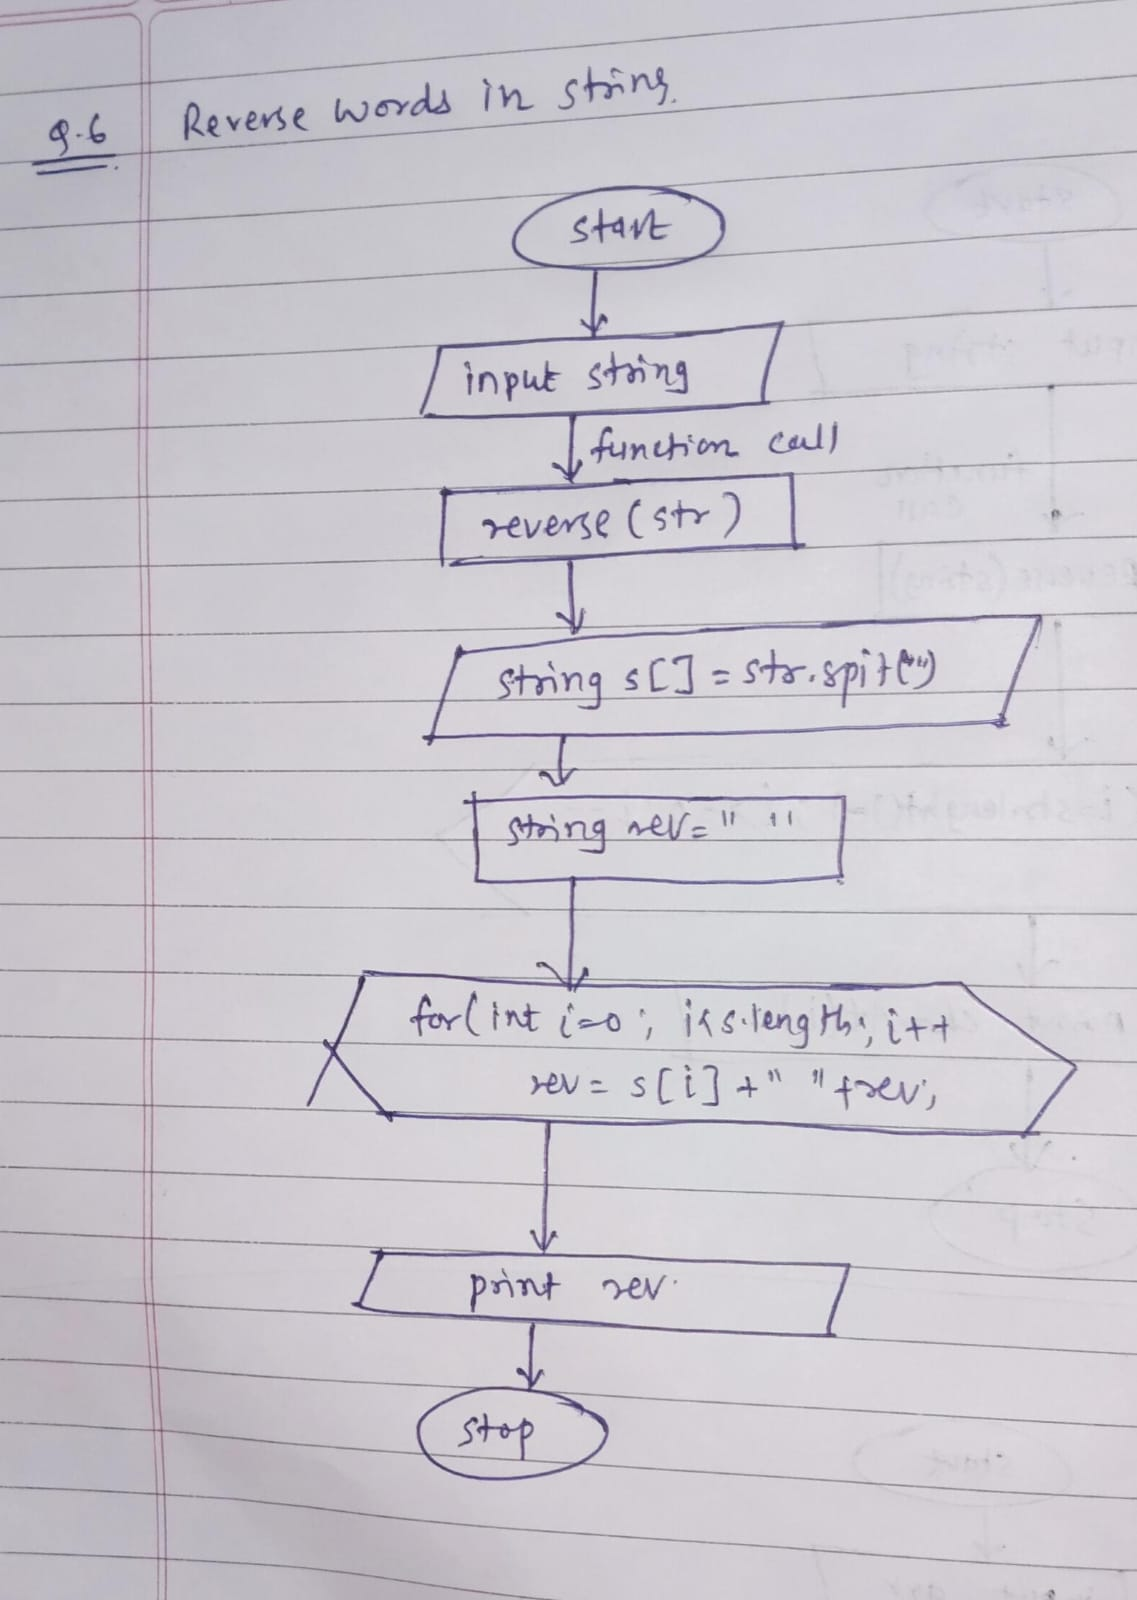 Q.6 Reverse words in string.
start
input string
function call
reverse (str)
string s[] = str.spit("")
string rev= " "
for( int i=0 ; i<s.length; i++
rev = s[i] +" "+rev;
print rev.
stop